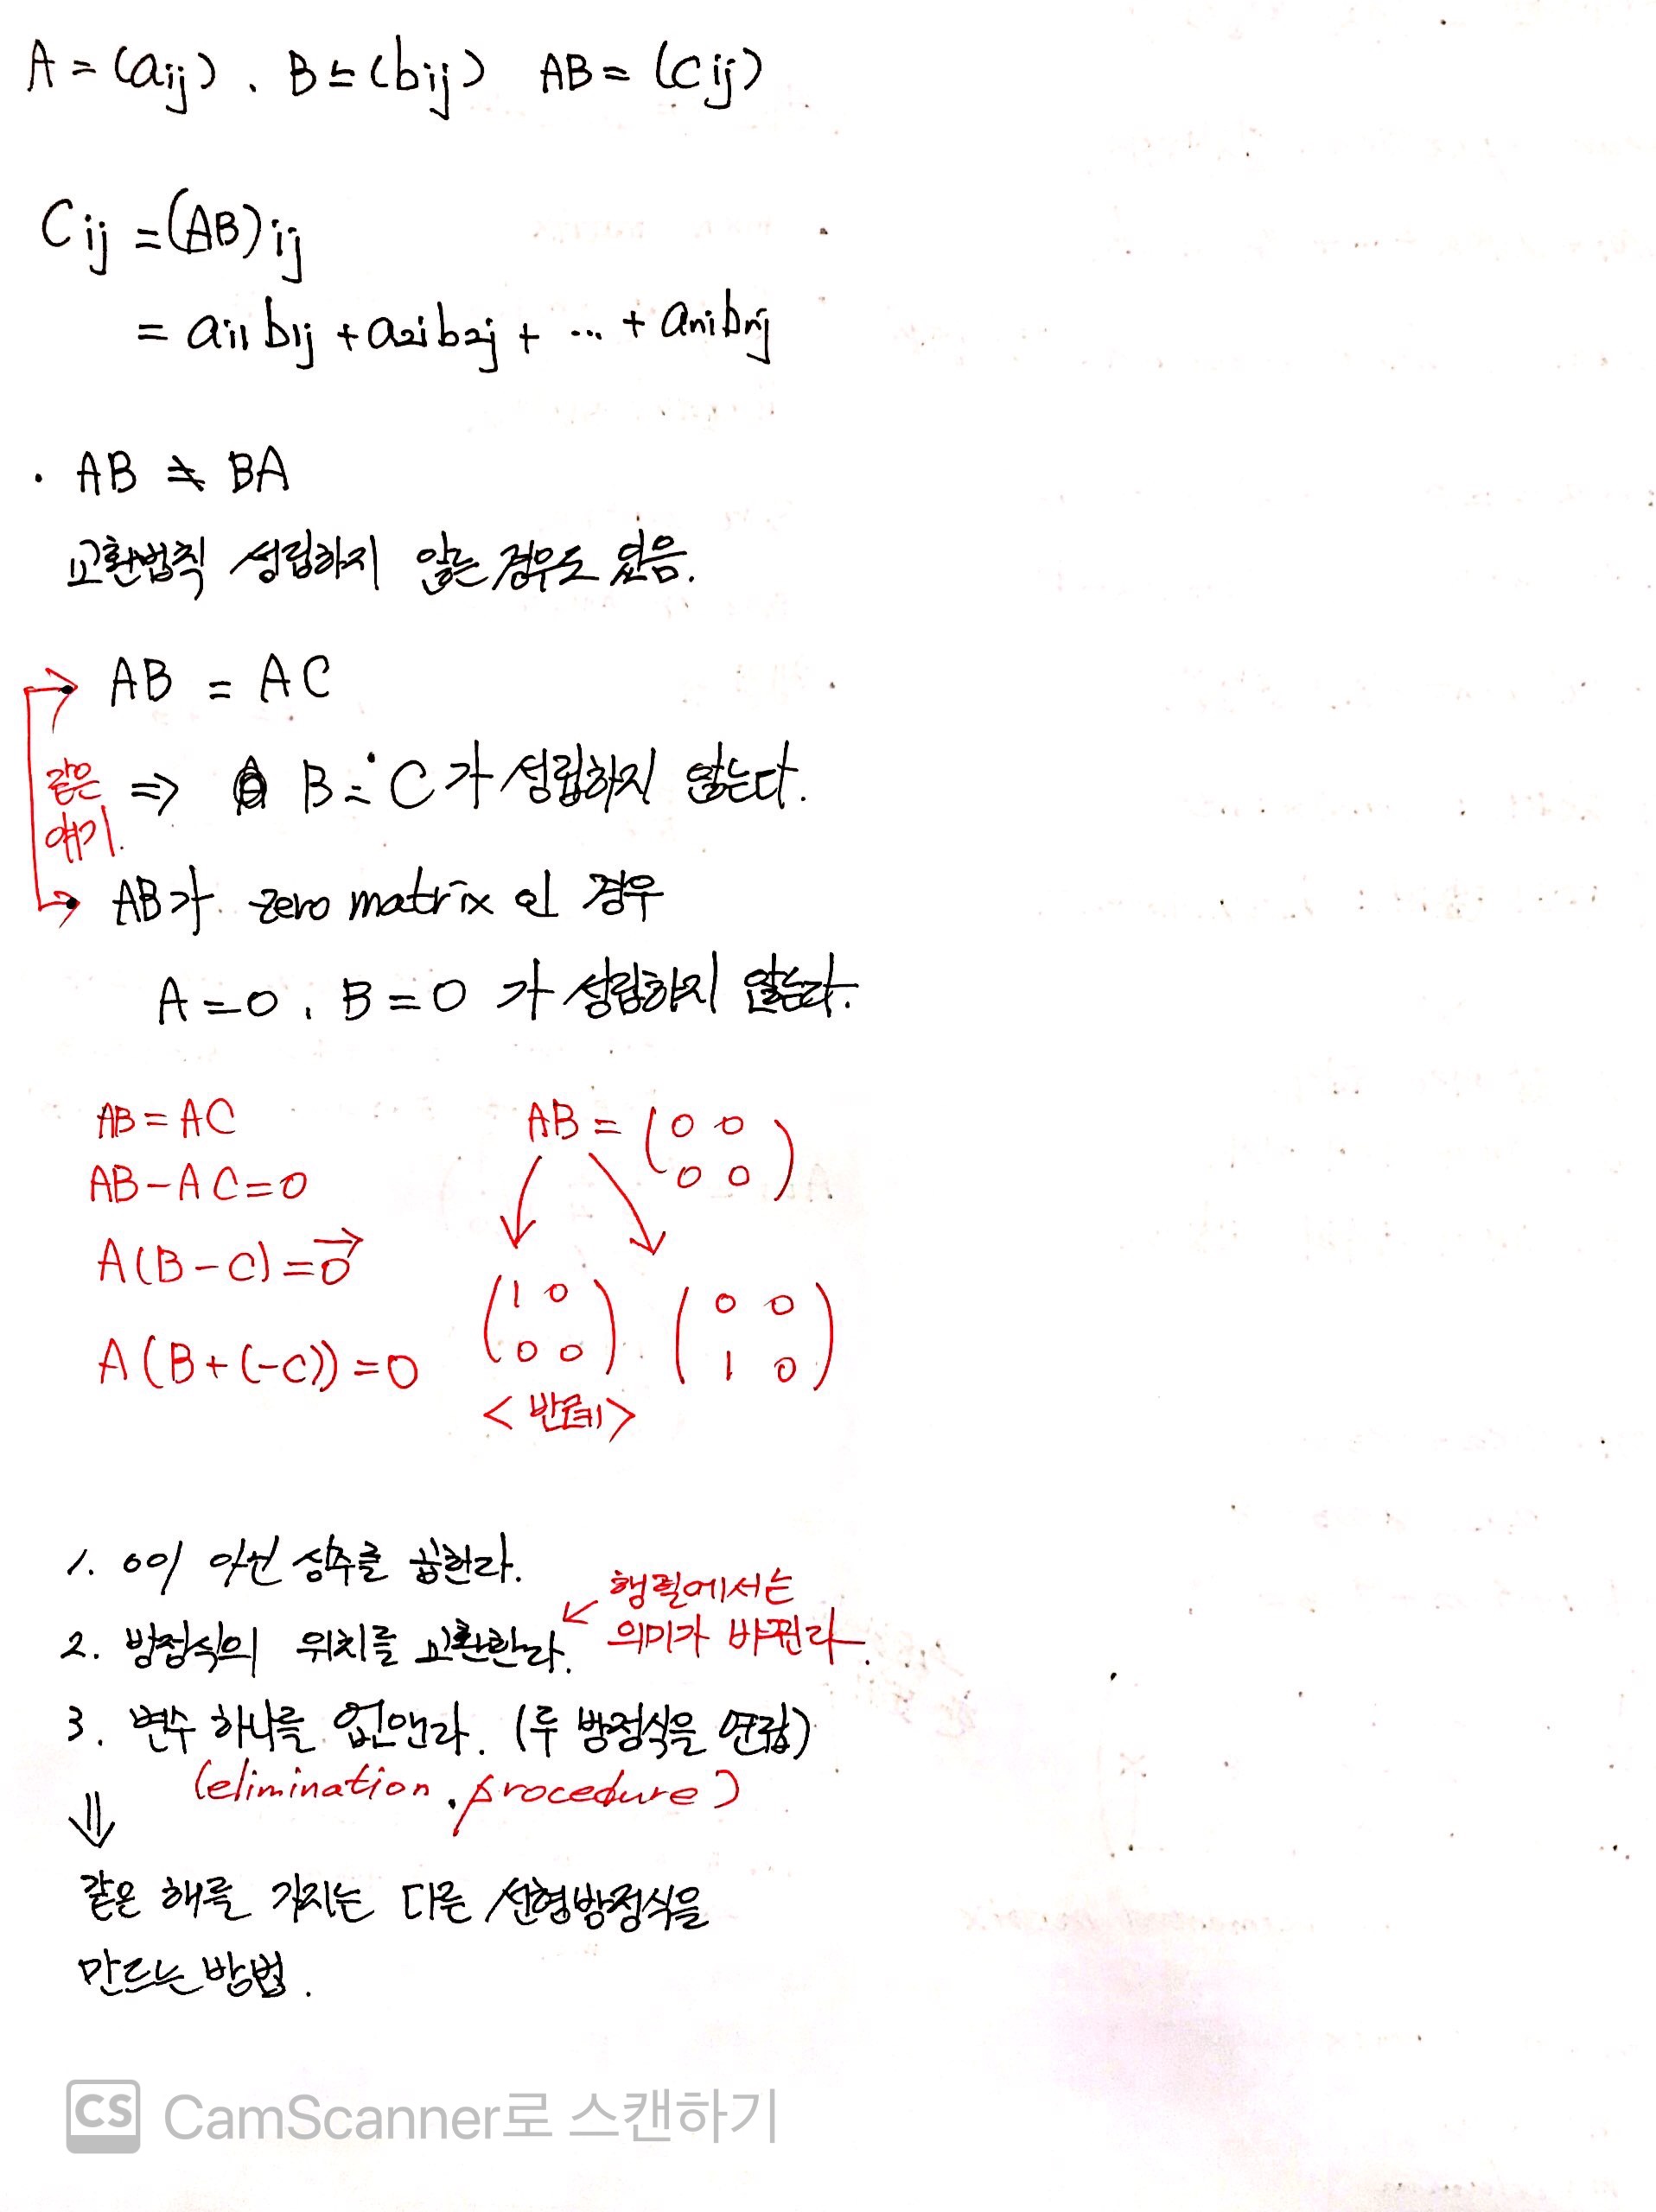 A = (aij), B = (bij) AB = (Cij)
Cij = (AB)ij
= ai1 b1j + a2i b2j + ... + ani bnj
· AB ≠ BA
교환법칙 성립하지 않는 경우도 있음.
AB = AC
같은
얘기.
⇒ B = C가 성립하지 않는다.
AB가 zero matrix 인 경우
A = 0, B = 0 가 성립하지 않는다.
AB = AC
AB - AC = 0
A(B - C) = 0
A(B + (-C)) = 0
AB = (0 0
0 0)
(1 0 (0 0
0 0) 1 0)
<반례>
1. 0이 아닌 상수를 곱한다.
2. 방정식의 위치를 교환한다.
← 행렬에서는
의미가 바뀐다.
3. 변수 하나를 없앤다. (두 방정식을 연립)
(elimination procedure)
⇓
같은 해를 가지는 다른 선형방정식을
만드는 방법.
CS CamScanner로 스캔하기